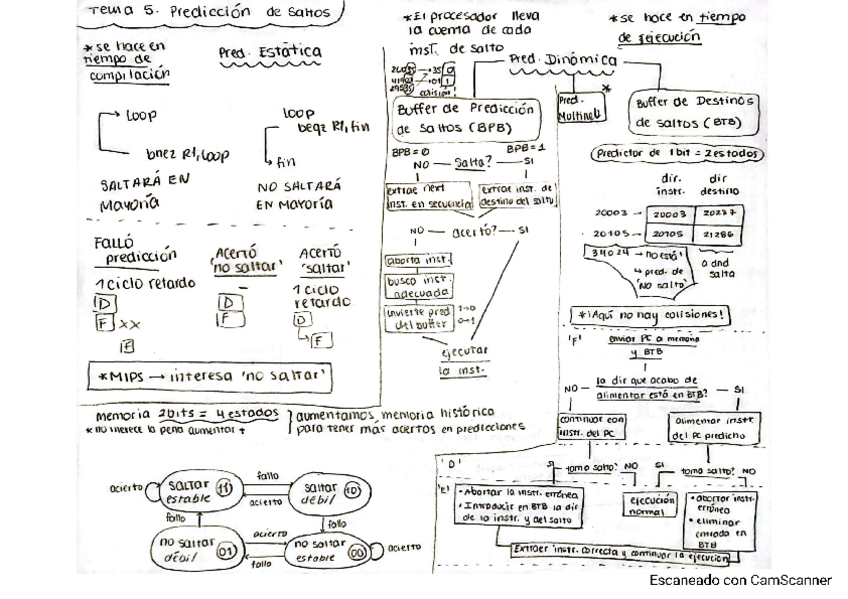 Tema 5. Predicción de Saltos
*se hace en
tiempo de
compilación
Pred. Estática
Loop
bnez R1, loop
SALTARÁ EN
Mayoría
loop
beqz R1, fin
fin
NO SALTARÁ
EN Mayoría
FALLÓ
predicción
1 ciclo retardo
D
F xx
Acertó
'no saltar'
-
D
F
Acertó
'saltar'
1 ciclo
retardo
D
F
*MIPS → interesa 'no saltar'
*El procesador lleva
la cuenta de cada
inst. de salto
*se hace en tiempo
de ejecución
Pred. Dinámica
colisión
Buffer de Predicción
de Saltos (BPB)
BPB=0
BPB=1
NO — Salta? — SI
extrae next
inst. en secuencia
extrae inst. de
destino del salto
NO — acertó? — SI
aborta inst.
busco inst.
adecuada
invierte pred
del buffer
1→0
0→1
ejecutar
la inst.
Pred.
Multinivel
*
Buffer de Destinos
de saltos (BTB)
Predictor de 1 bit = 2 estados
dir. instr.
dir destino
20003 → 20003 20237
20105 → 20105 21286
34024 → no está!
→ pred. de
'NO salto'
a dnd
salta
*¡Aquí no hay colisiones!
'F'
enviar PC a memoria
y BTB
NO — la dir que acabo de
alimentar está en BTB? — SI
continuar con
instr. del PC
alimentar instr.
del PC predicho
'D'
SI — tomo salto? NO
SI tomo salto? NO
'E'
• Abortar la instr. errónea
• Introducir en BTB la dir
de la instr. y del salto
ejecución
normal
• abortar instr.
errónea
• eliminar
entrada en
BTB
Extraer instr. correcta y continuar la ejecución
memoria 2bits = 4 estados
*no merece la pena aumentar +
aumentamos memoria histórico
para tener más acertos en predicciones
acierto
saltar
estable
11
fallo
acierto
saltar
débil
10
fallo
fallo
no saltar
débil
01
acierto
fallo
no saltar
estable
00
acierto
Escaneado con CamScanner